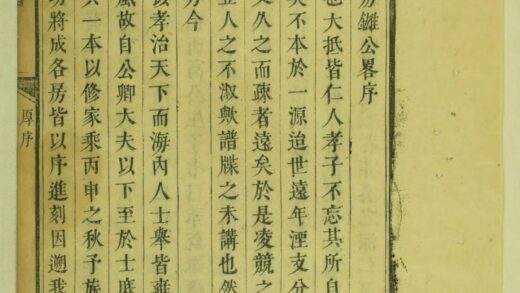 公畧序
也大抵皆仁人孝子不忘其所自
不本於一源迨世遠年湮支分
久之而疎者遠矣於是凌競之
人之不淑歟譜牒之未講也然
方今
孝治天下而海内人士舉皆雍
風故自公卿大夫以下至於士庶
一本以修家乘丙申之秋予族
將成各房皆以序進刻因遡我
厚序